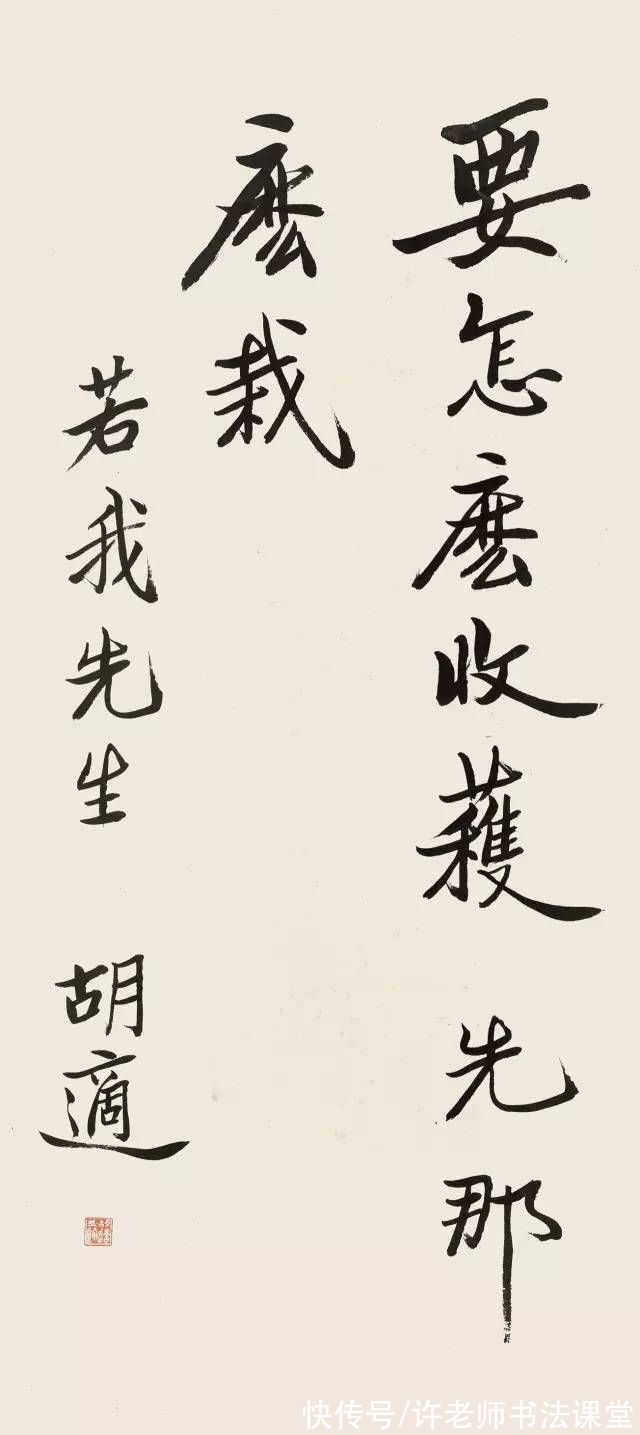 要怎麽收穫 先那
麽栽
若我先生 胡適
快传号/许老师书法课堂